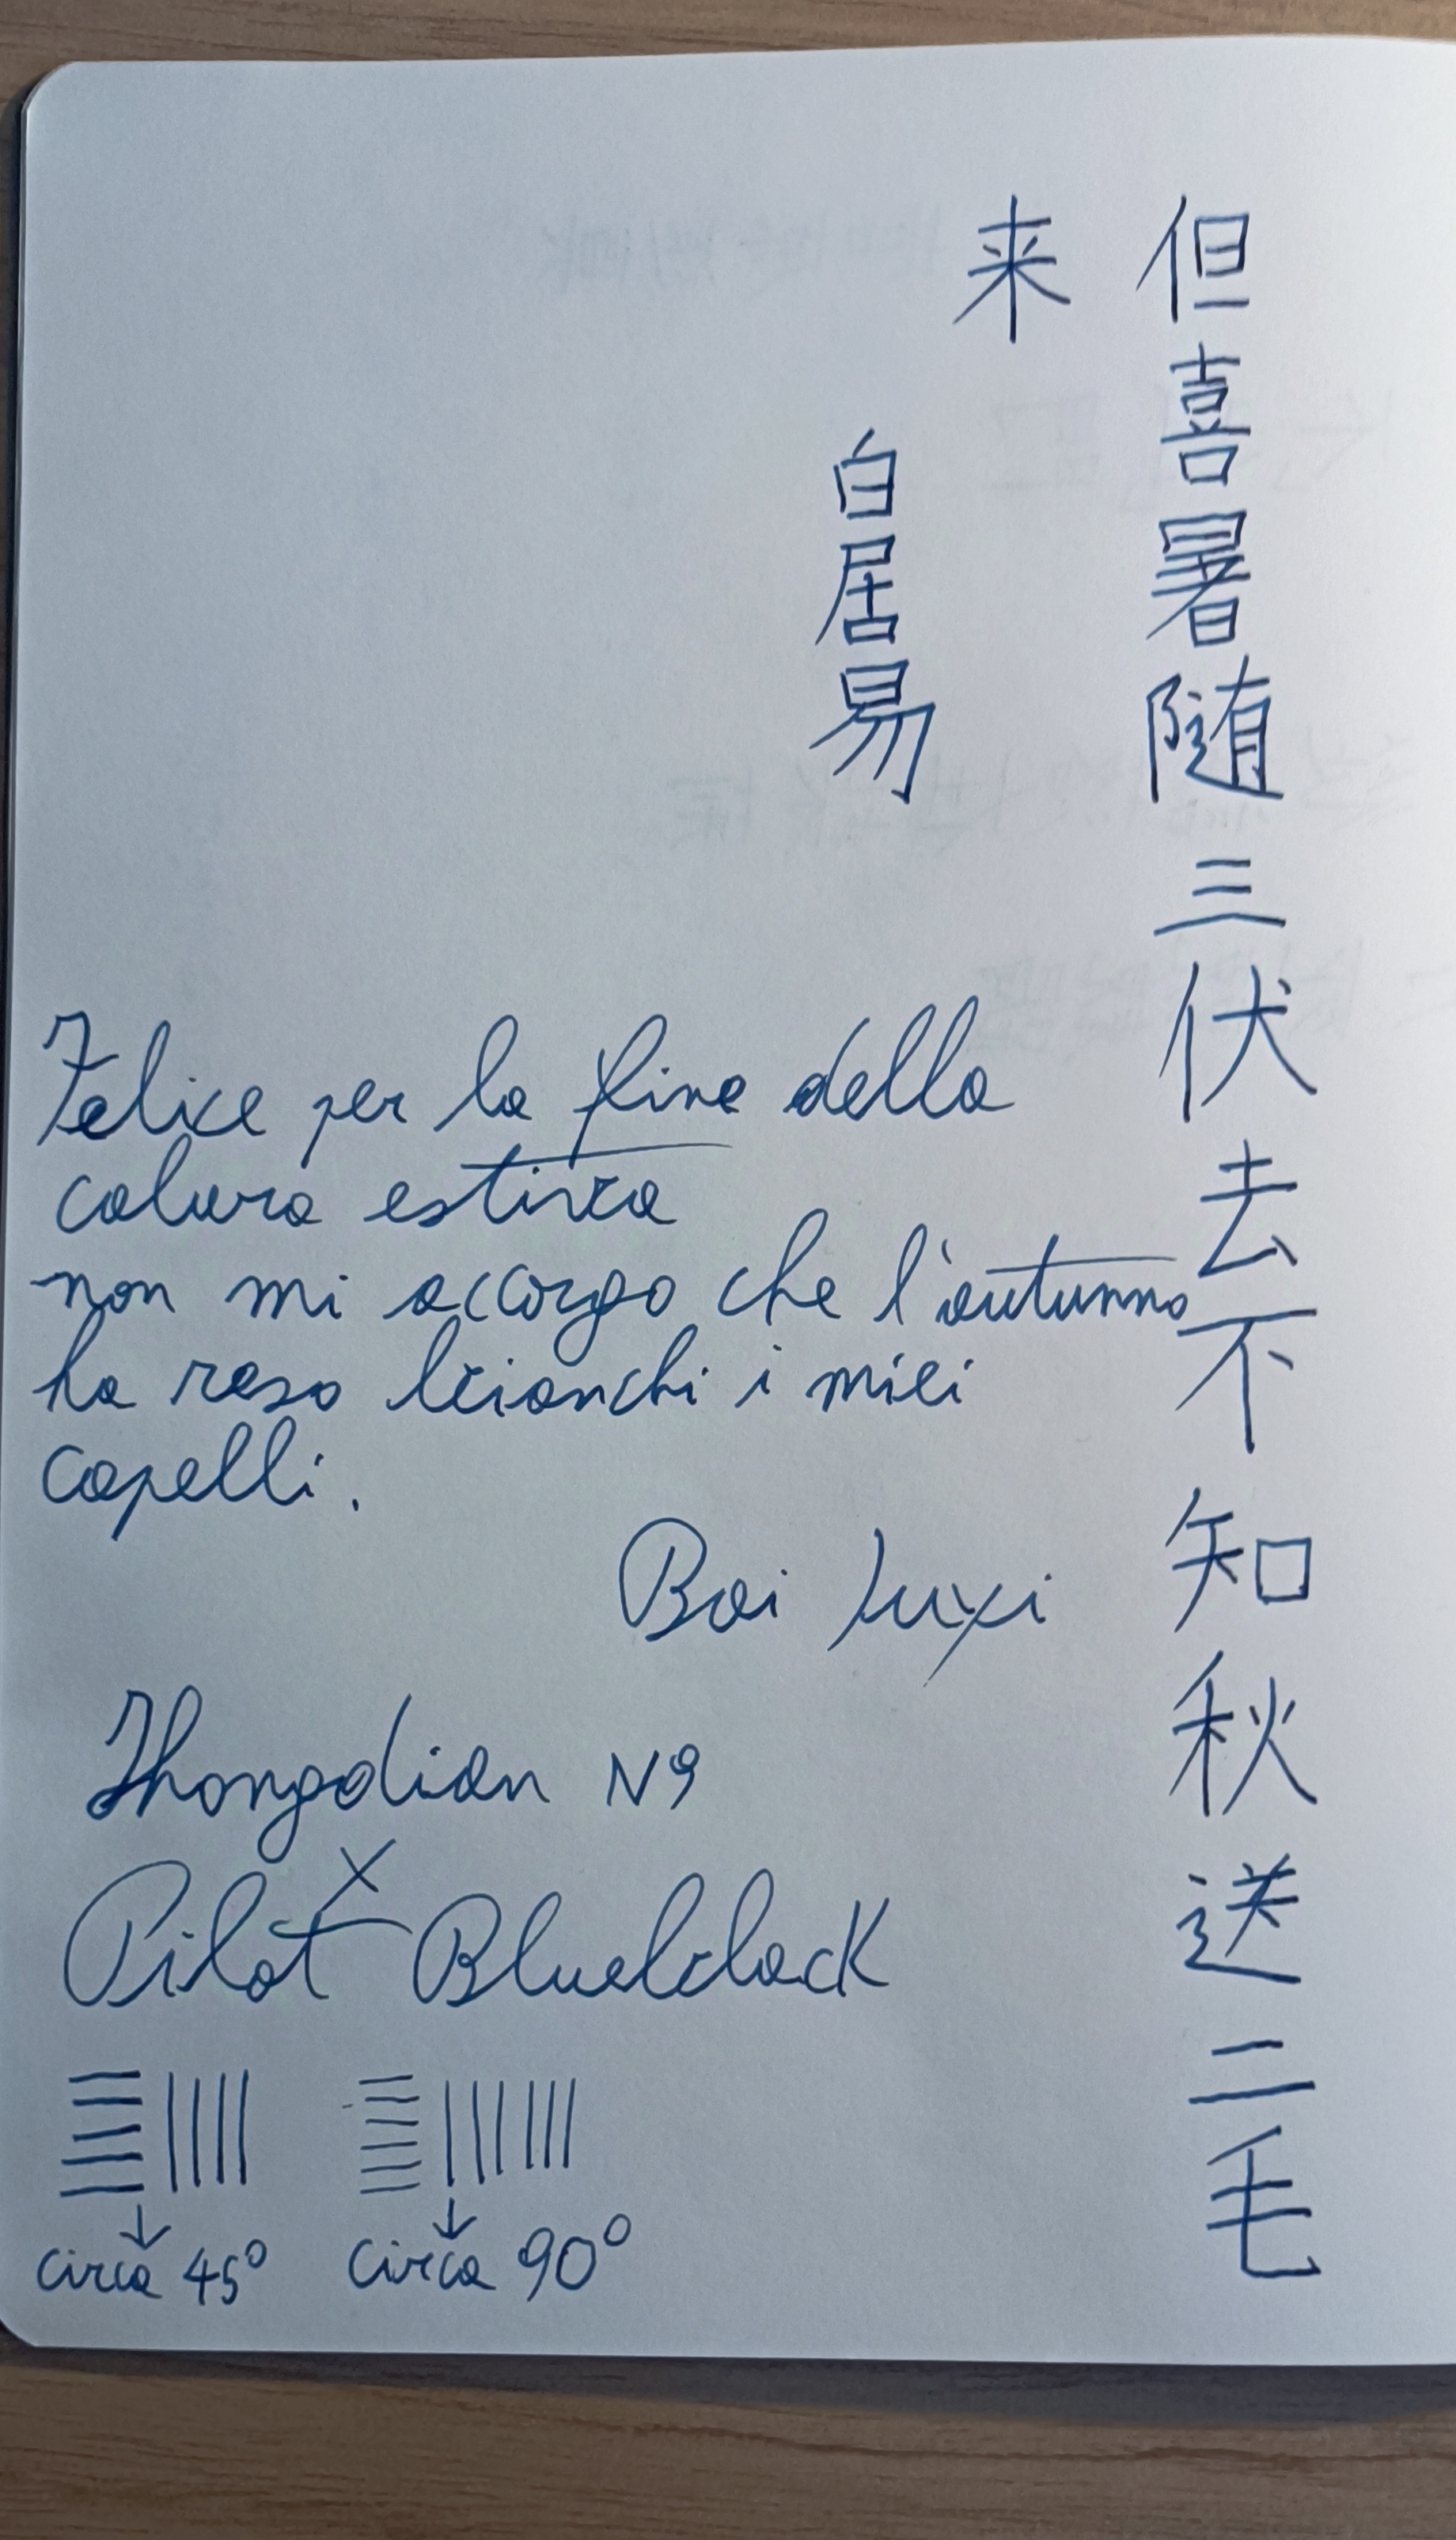 但喜暑随三伏去不知秋送二毛
来
白居易
Felice per la fine della
calura estiva
non mi accorgo che l'autunno
ha reso bianchi i miei
capelli.
Bai Juyi
Zhongdian N9
X
Pilot Blueblack
circa 45° circa 90°